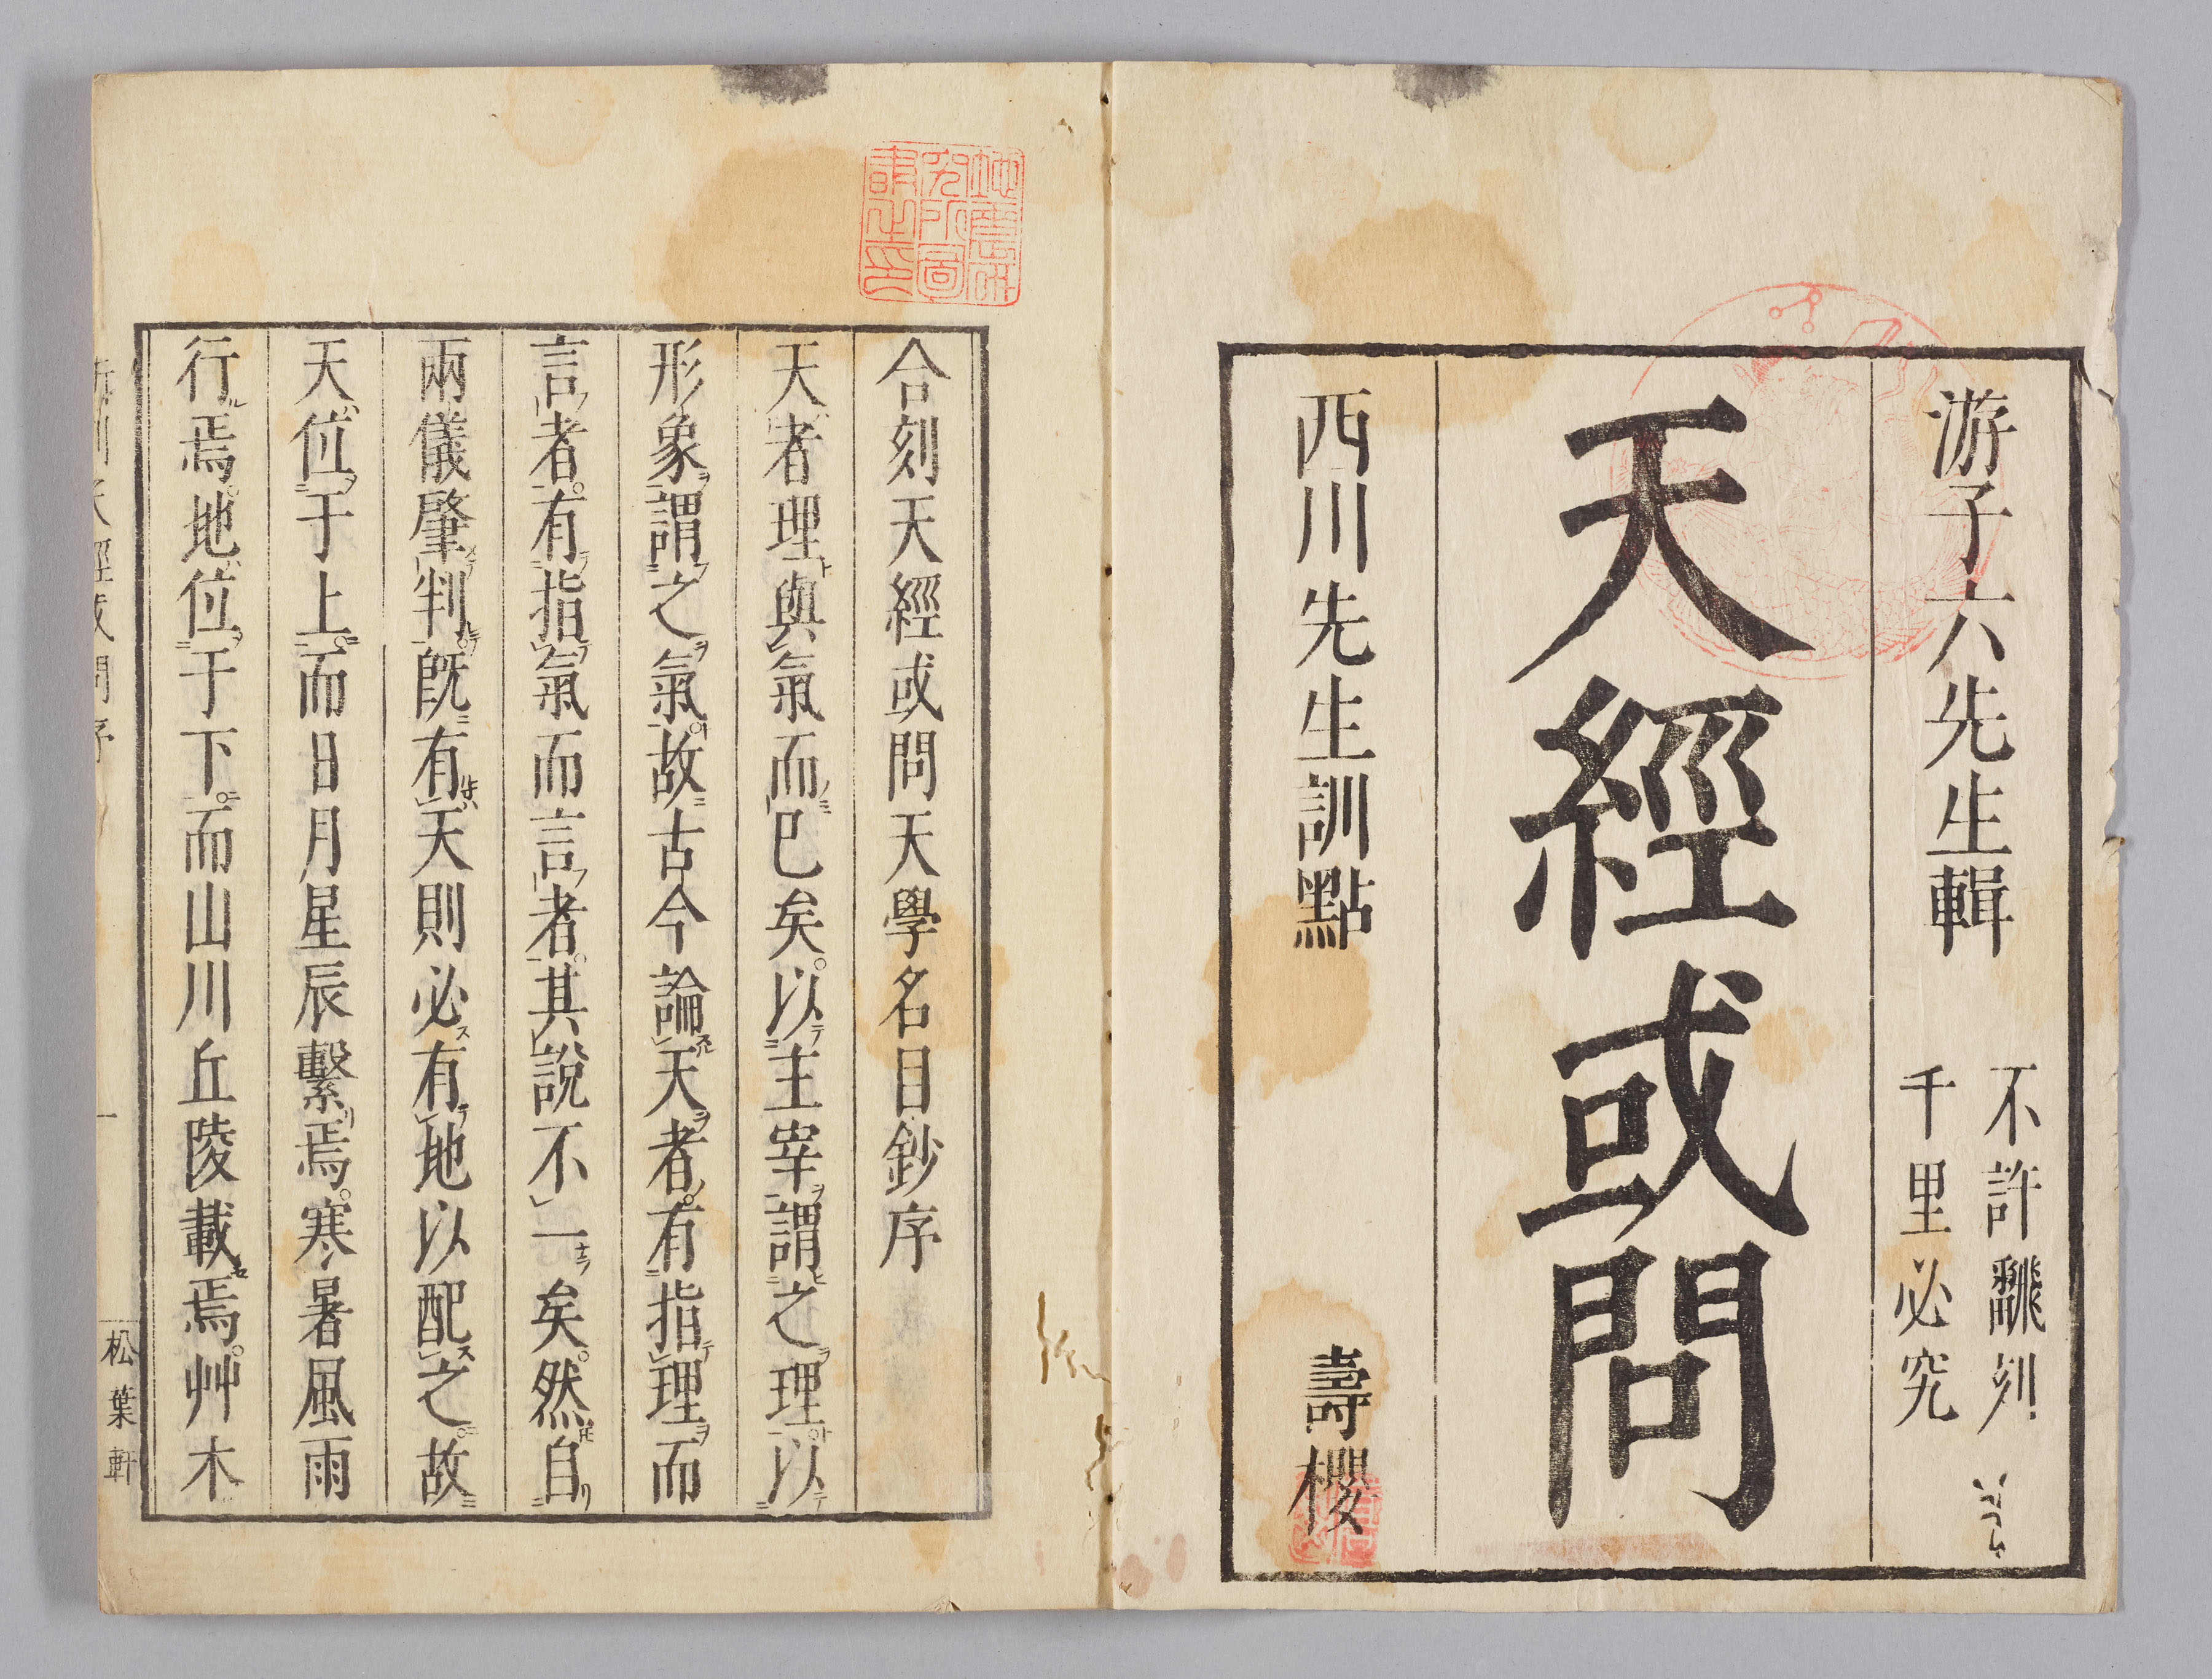 游子六先生輯
不許翻刻
千里必究
天經或問
西川先生訓點
壽櫻
合刻天經或問天學名目鈔序
天者理與氣而已矣。以主宰謂之理以
形象謂之氣。故古今論天者。有指理而
言者。有指氣而言者。其說不一矣。然自
兩儀肇判。既有天則必有地以配之。故
天位于上。而日月星辰繫焉。寒暑風雨
行焉。地位于下。而山川丘陵載焉。艸木
松葉軒